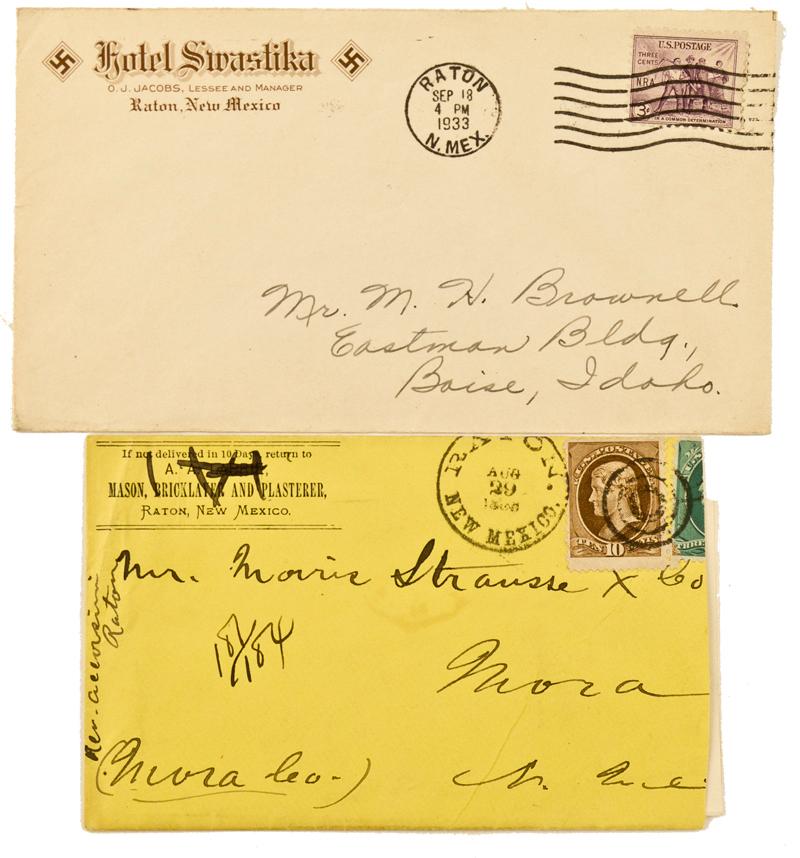 Hotel Swastika
O. J. JACOBS, LESSEE AND MANAGER
Raton, New Mexico
RATON
SEP 18
4 PM
1933
N. MEX.
U.S. POSTAGE
THREE CENTS
NRA
3¢
IN A COMMON DETERMINATION
Mr. M. H. Brownell
Eastman Bldg.,
Boise, Idaho.
If not delivered in 10 Days, return to
A. A.
MASON, BRICKLAYER AND PLASTERER,
RATON, NEW MEXICO.
RATON.
AUG
29
NEW MEXICO.
10
Mr. Morris Strausse & Co
Raton
Mora
(Mora Co.)